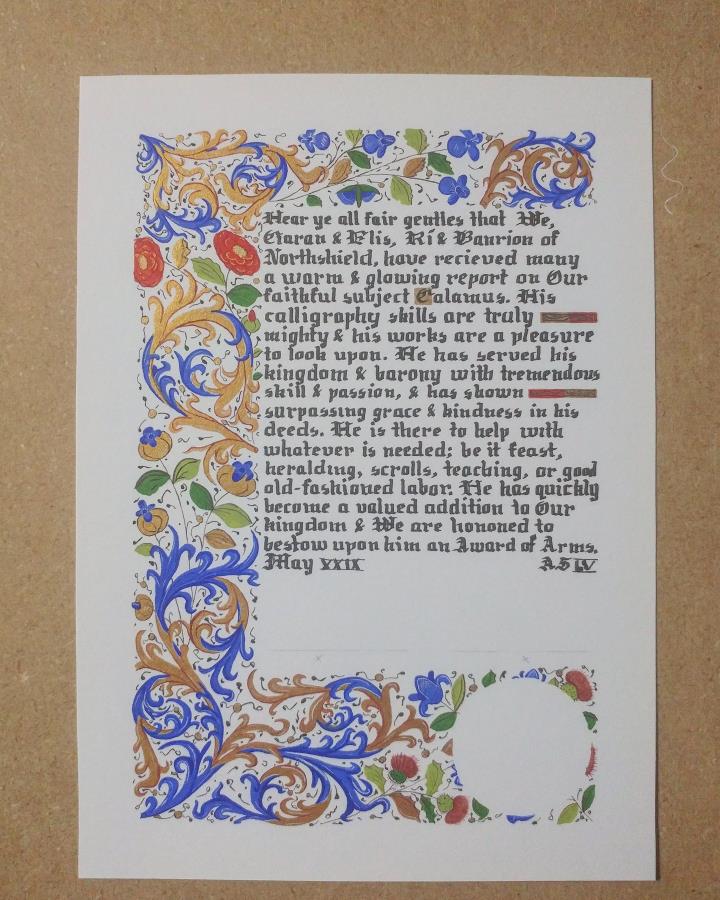 Hear ye all fair gentles that We,
Ciaran & Elis, Rí & Banrion of
Northshield, have recieved many
a warm & glowing report on Our
faithful subject Calamus. His
calligraphy skills are truly
mighty & his works are a pleasure
to look upon. He has served his
kingdom & barony with tremendous
skill & passion, & has shown
surpassing grace & kindness in his
deeds. He is there to help with
whatever is needed; be it feast,
heralding, scrolls, teaching, or good
old-fashioned labor. He has quickly
become a valued addition to Our
kingdom & We are honored to
bestow upon him an Award of Arms.
May XXIX A.S LV